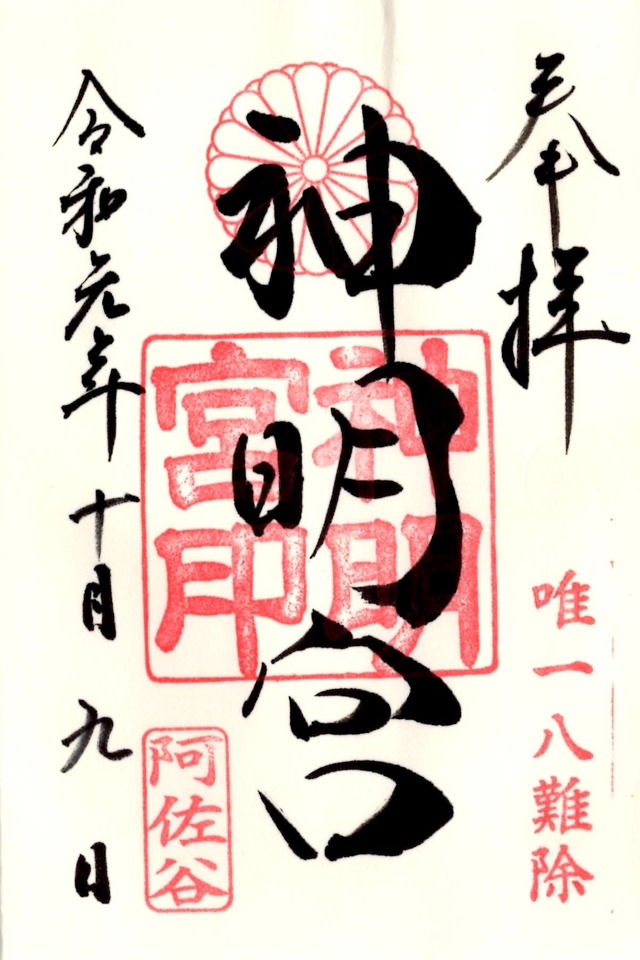 奉拝
唯一八難除
神明宮
神明宮印
阿佐谷
令和元年十月九日